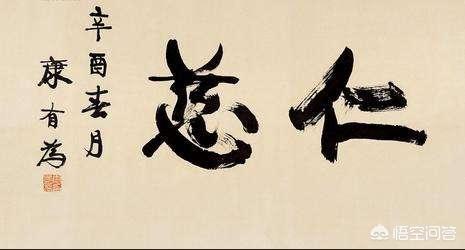 仁慈
辛酉春月
康有為
悟空问答